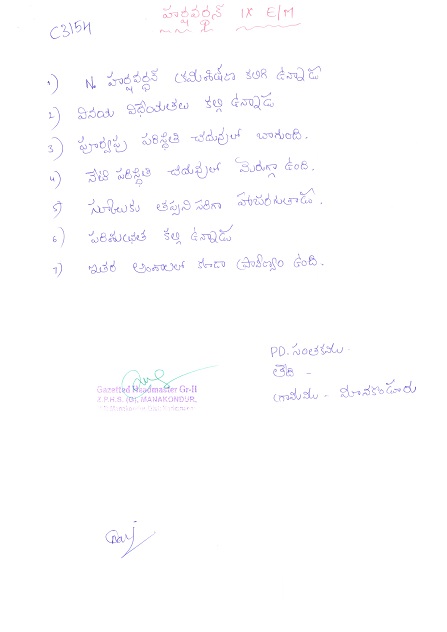 హర్షవర్ధన్ IX E/M
C3154
1) N. హర్షవర్ధన్ క్రమశిక్షణ కలిగి ఉన్నాడు
2) వినయ విధేయతలు కల్గి ఉన్నాడు
3) పూర్వపు పరిస్థితి చదువులో బాగుంది.
4) నేటి పరిస్థితి చదువులో మెరుగ్గా ఉంది.
5) స్కూలుకు తప్పనిసరిగా హాజరగుతాడు.
6) పరిశుభ్రత కల్గి ఉన్నాడు
7) ఇతర అంశాలలో కూడా ప్రావీణ్యం ఉంది.
PD. సంతకము.
తేది -
గ్రామము - మానకొండూరు
Gazetted Headmaster Gr-II
Z.P.H.S. (B), MANAKONDUR,